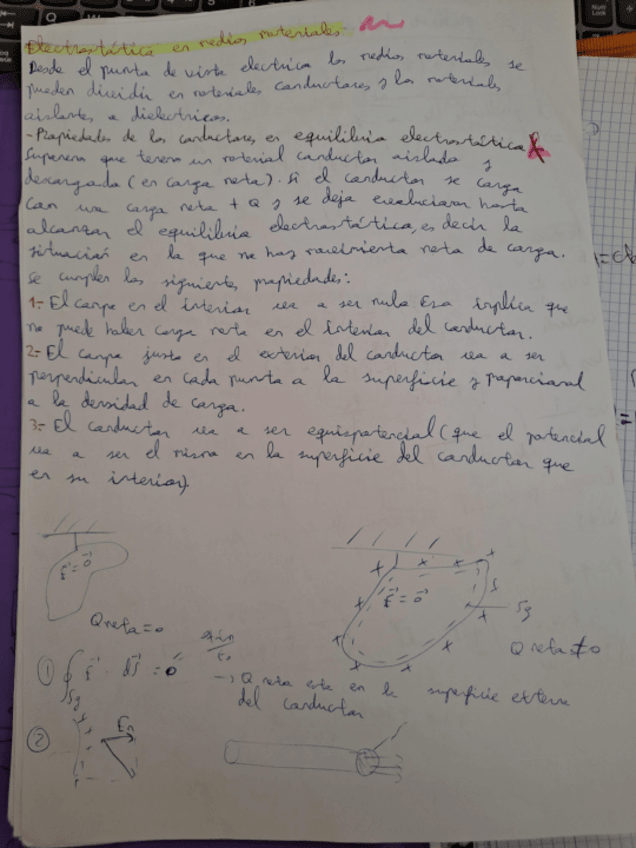 Electrostática en medios materiales.
Desde el punto de vista electrico los medios materiales se
pueden dividir en materiales conductores y los materiales
aislantes o dielectricos.
- Propiedades de los conductores en equilibrio electrostático
Suponemos que tenemos un material conductor aislado y
descargado (en carga neta). Si el conductor se carga
con una carga neta +Q y se deja evolucionar hasta
alcanzar el equilibrio electrostático, es decir la
situación en la que no hay movimiento neto de carga.
se cumplen las siguientes propiedades:
1.- El campo en el interior va a ser nulo Eso implica que
no puede haber carga neta en el interior del conductor.
2.- El campo justo en el exterior del conductor va a ser
perpendicular en cada punto a la superficie y proporcional
a la densidad de carga.
3.- El conductor va a ser equipotencial (que el potencial
va a ser el mismo en la superficie del conductor que
en su interior)
E⃗ = 0⃗
E⃗ = 0⃗
Sg
Q neta = 0
Q neta ≠ 0
① ∮ E⃗ · dS⃗ = 0
Sg
→ Q neta esta en la superficie externa
del conductor
②